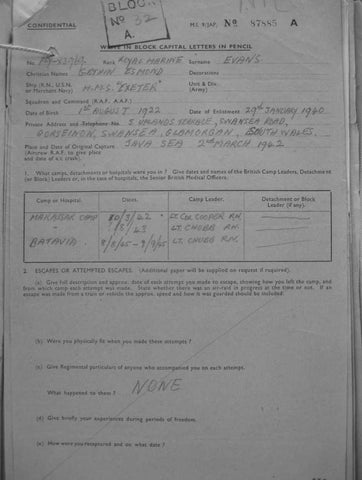 CONFIDENTIAL
BLOCK
Nº 32
A.
M.I. 9/JAP/ Nº 87885 A
WRITE IN BLOCK CAPITAL LETTERS IN PENCIL
No. Rank ROYAL MARINE Surname EVANS
Christian Names ESMOND Decorations
Ship (R.N., U.S.N. or Merchant Navy) H.M.S. "EXETER" Unit & Div. (Army)
Squadron and Command (R.A.F. A.A.F.)
Date of Birth 1ST AUGUST 1922 Date of Enlistment 29TH JANUARY 1940
Private Address and Telephone No. 5 TERRACE, SWANSEA ROAD,
GORSEINON, SWANSEA, GLAMORGAN, SOUTH WALES.
Place and Date of Original Capture JAVA SEA 2ND MARCH 1942
(Aircrew R.A.F. to give place
and date of a/c crash).
1. What camps, detachments or hospitals were you in? Give dates and names of the British Camp Leaders, Detachment
(or Block) Leaders or, in the case of hospitals, the Senior British Medical Officers.
Camp or Hospital. Dates. Camp Leader. Detachment or Block Leader (if any).
MAKASSAR CAMP 10/3/42 LT CDR COOPER R.N.
" LT. CHUBB R.N.
BATAVIA LT. CHUBB R.N.
2. ESCAPES OR ATTEMPTED ESCAPES. (Additional paper will be supplied on request if required).
(a) Give full description and approx. date of each attempt you made to escape, showing how you left the camp, and
from which camp each attempt was made. State whether there was an air-raid in progress at the time or not. If an
escape was made from a train or vehicle the approx. speed and how it was guarded should be included.
(b) Were you physically fit when you made these attempts?
(c) Give Regimental particulars of anyone who accompanied you on each attempt.
What happened to them? NONE
(d) Give briefly your experiences during periods of freedom.
(e) How were you recaptured and on what date?